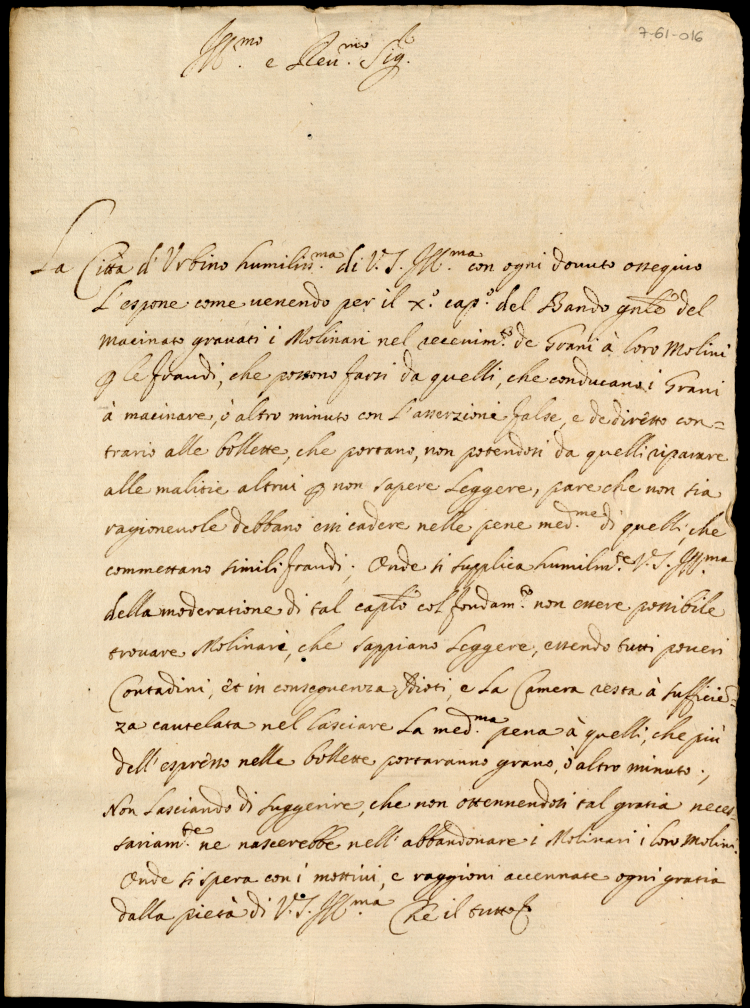 7-61-016
Ill.mo e Reu.mo Sig.r
La Città d'Urbino humiliss.ma di V.S. Ill.ma con ogni douuto ossequio
L'espone come uenendo per il X.o cap.o del Bando gnle del
macinato grauati i Molinari nel receuim.to de Grani à loro Molini
p le fraudi, che possono farsi da quelli, che conducano i Grani
à macinare, ò altro minuto con l'asserzioni false, e de diretto con=
trario alle bollette, che portano, non potendosi da quelli riparare
alle malitie altrui p non sapere leggere, pare che non sia
ragioneuole debbano essi cadere nelle pene med.me di quelli, che
commettano simili fraudi; Onde si supplica humilm.te V.S. Ill.ma
della moderatione di tal caplo col fondam.to non essere possibile
trouare Molinari, che sappiano leggere, essendo tutti poueri
Contadini, et in conseguenza Idioti, e la Camera resta à sufficiē=
za cautelata nel lasciare la med.ma pena à quelli, che più
dell'espresso nelle bollette portaranno grano, ò altro minuto.,
Non lasciando di suggerire, che non ottennendosi tal gratia neces-
sariam.te ne nascerebbe nell'abbandonare i Molinari i loro Molini.
Onde si spera con i mottiui, e raggioni accennate ogni gratia
dalla pietà di V.S. Ill.ma Che il tutto